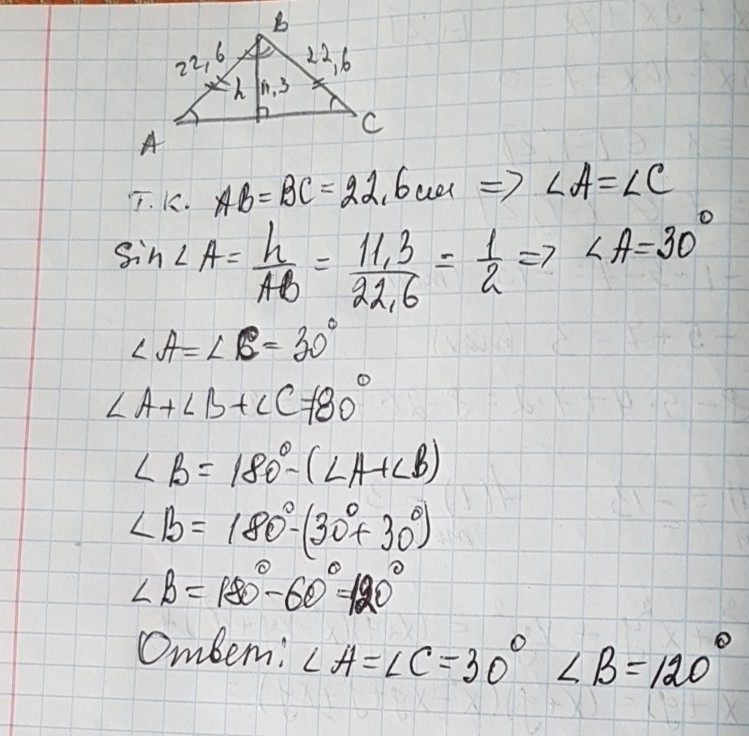 B
22,6 22,6
h 11,3
A C
Т.к. AB=BC=22,6см => ∠A=∠C
Sin∠A= h/AB = 11,3/22,6 = 1/2 => ∠A=30°
∠A=∠C=30°
∠A+∠B+∠C=180°
∠B=180°-(∠A+∠B)
∠B=180°-(30°+30°)
∠B=180°-60°=120°
Ответ: ∠A=∠C=30° ∠B=120°